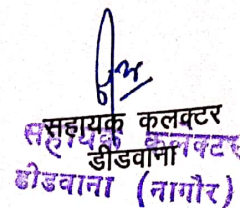 सहायक कलक्टर
डीडवाना
सहायक कलक्टर
डीडवाना (नागौर)